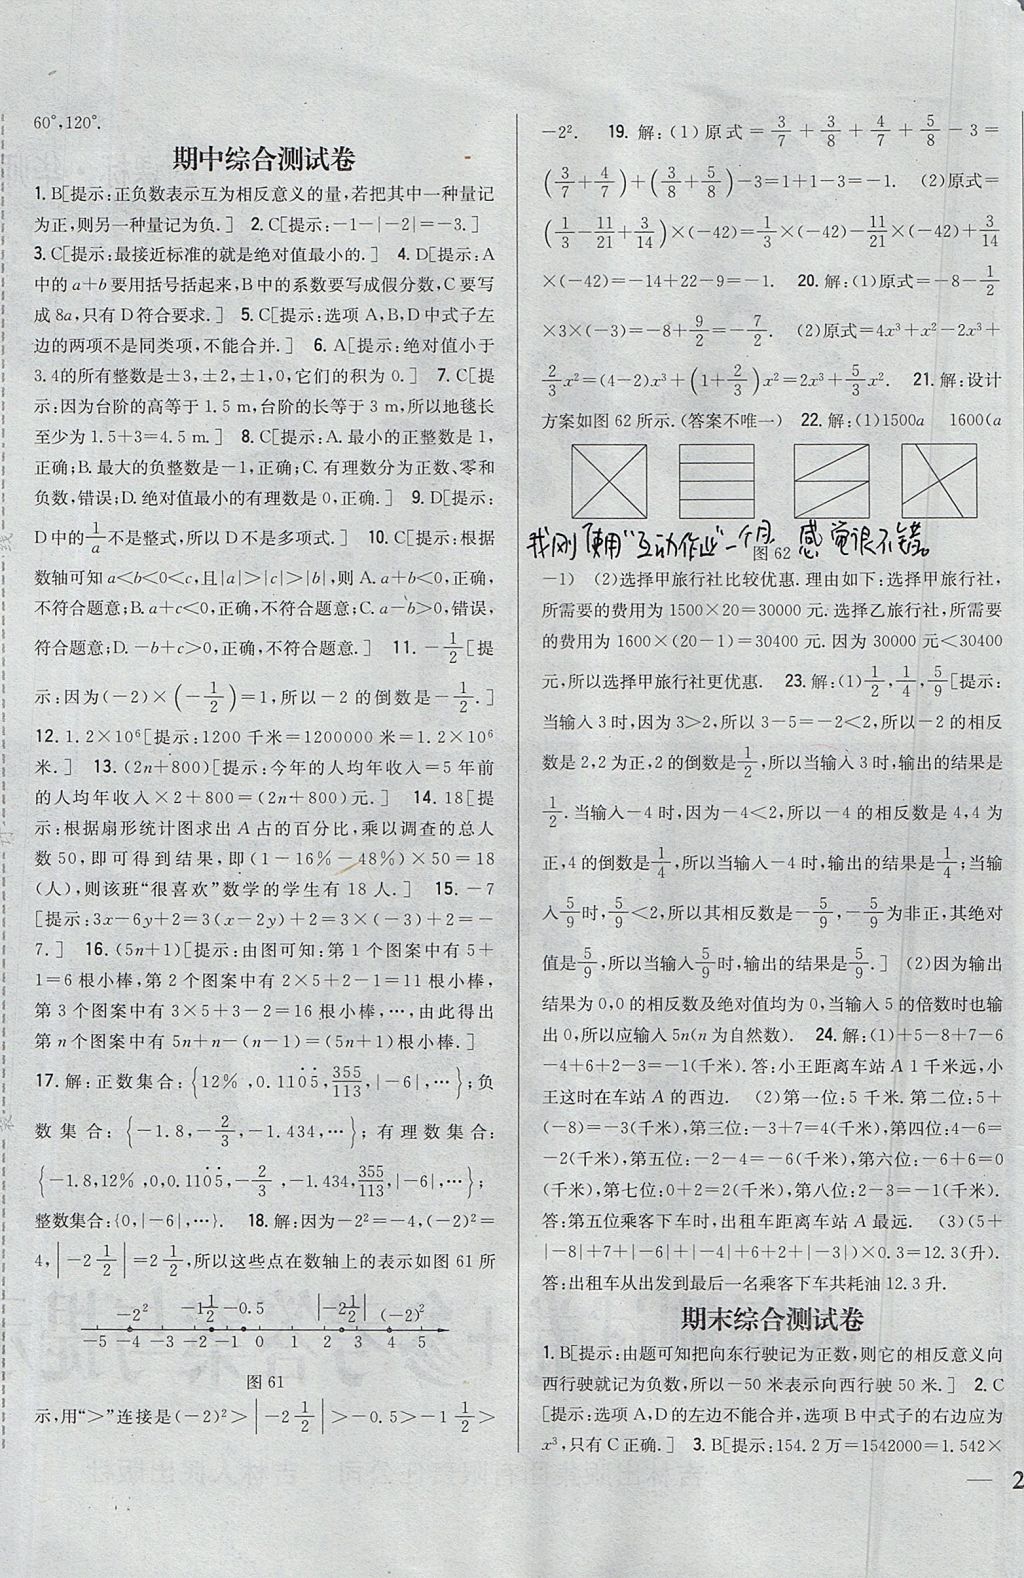 60°,120°.
期中综合测试卷
1. B[提示:正负数表示互为相反意义的量,若把其中一种量记
为正,则另一种量记为负.] 2. C[提示:-1-|-2|=-3.]
3. C[提示:最接近标准的就是绝对值最小的.] 4. D[提示:A
中的 a+b 要用括号括起来,B 中的系数要写成假分数,C 要写
成 8a,只有 D 符合要求.] 5. C[提示:选项 A,B,D 中式子左
边的两项不是同类项,不能合并.] 6. A[提示:绝对值小于
3.4的所有整数是±3,±2,±1,0,它们的积为 0.] 7. C[提
示:因为台阶的高等于 1.5 m,台阶的长等于 3 m,所以地毯长
至少为 1.5+3=4.5 m.] 8. C[提示:A. 最小的正整数是 1,
正确;B. 最大的负整数是-1,正确;C. 有理数分为正数、零和
负数,错误;D. 绝对值最小的有理数是 0,正确.] 9. D[提示:
D 中的 1/a 不是整式,所以 D 不是多项式.] 10. C[提示:根据
数轴可知 a<b<0<c,且|a|>|c|>|b|,则 A. a+b<0,正确,
不符合题意;B. a+c<0,正确,不符合题意;C. a-b>0,错误,
符合题意;D. -b+c>0,正确,不符合题意.] 11. -1/2[提
示:因为(-2)×(-1/2)=1,所以-2 的倒数是-1/2.]
12. 1.2×10⁶[提示:1200 千米=1200000 米=1.2×10⁶
米.] 13. (2n+800)[提示:今年的人均年收入=5 年前
的人均年收入×2+800=(2n+800)元.] 14. 18[提
示:根据扇形统计图求出 A 占的百分比,乘以调查的总人
数 50,即可得到结果,即(1-16%-48%)×50=18
(人),则该班“很喜欢”数学的学生有 18 人.] 15. -7
[提示:3x-6y+2=3(x-2y)+2=3×(-3)+2=-
7.] 16. (5n+1)[提示:由图可知:第 1 个图案中有 5+
1=6 根小棒,第 2 个图案中有 2×5+2-1=11 根小棒,
第 3 个图案中有 3×5+3-2=16 根小棒,…,由此得出
第 n 个图案中有 5n+n-(n-1)=(5n+1)根小棒.]
17. 解:正数集合:{12%,0.110̇5̇,355/113,|-6|,…};负
数集合:{-1.8,-2/3,-1.434,…};有理数集合:
{-1.8,12%,0,0.110̇5̇,-2/3,-1.434,355/113,|-6|,…};
整数集合:{0,|-6|,…}. 18. 解:因为-2²=-4,(-2)²=
4,|-2 1/2|=2 1/2,所以这些点在数轴上的表示如图 61 所
-2² -1 1/2 -0.5 |-2 1/2| (-2)²
-5 -4 -3 -2 -1 0 1 2 3 4 5
图 61
示,用“>”连接是(-2)²>|-2 1/2|>-0.5>-1 1/2>
-2². 19. 解:(1)原式=3/7+3/8+4/7+5/8-3=
(3/7+4/7)+(3/8+5/8)-3=1+1-3=-1. (2)原式=
(1/3-11/21+3/14)×(-42)=1/3×(-42)-11/21×(-42)+3/14
×(-42)=-14+22-9=-1. 20. 解:(1)原式=-8-1/2
×3×(-3)=-8+9/2=-7/2. (2)原式=4x³+x²-2x³+
2/3x²=(4-2)x³+(1+2/3)x²=2x³+5/3x². 21. 解:设计
方案如图 62 所示.(答案不唯一) 22. 解:(1)1500a 1600(a
我刚使用“互动作业”一个月 感觉很不错。
图 62
-1) (2)选择甲旅行社比较优惠. 理由如下:选择甲旅行社,
所需要的费用为 1500×20=30000 元. 选择乙旅行社,所需要
的费用为 1600×(20-1)=30400 元. 因为 30000 元<30400
元,所以选择甲旅行社更优惠. 23. 解:(1)1/2,1/4,5/9[提示:
当输入 3 时,因为 3>2,所以 3-5=-2<2,所以-2 的相反
数是 2,2 为正,2 的倒数是1/2,所以当输入 3 时,输出的结果是
1/2. 当输入-4 时,因为-4<2,所以-4 的相反数是 4,4 为
正,4 的倒数是1/4,所以当输入-4 时,输出的结果是1/4;当输
入5/9时,5/9<2,所以其相反数是-5/9,-5/9为非正,其绝对
值是5/9,所以当输入5/9时,输出的结果是5/9.] (2)因为输出
结果为 0,0 的相反数及绝对值均为 0,当输入 5 的倍数时也输
出 0,所以应输入 5n(n 为自然数). 24. 解:(1)+5-8+7-6
-4+6+2-3=-1(千米). 答:小王距离车站 A 1 千米远,小
王这时在车站 A 的西边. (2)第一位:5 千米. 第二位:5+
(-8)=-3(千米),第三位:-3+7=4(千米),第四位:4-6=
-2(千米),第五位:-2-4=-6(千米),第六位:-6+6=0
(千米),第七位:0+2=2(千米),第八位:2-3=-1(千米).
答:第五位乘客下车时,出租车距离车站 A 最远. (3)(5+
|-8|+7+|-6|+|-4|+6+2+|-3|)×0.3=12.3(升).
答:出租车从出发到最后一名乘客下车共耗油 12.3 升.
期末综合测试卷
1. B[提示:由题可知把向东行驶记为正数,则它的相反意义向
西行驶就记为负数,所以-50 米表示向西行驶 50 米.] 2. C
[提示:选项 A,D 的左边不能合并,选项 B 中式子的右边应为
x³,只有 C 正确.] 3. B[提示:154.2 万=1542000=1.542×
— 2